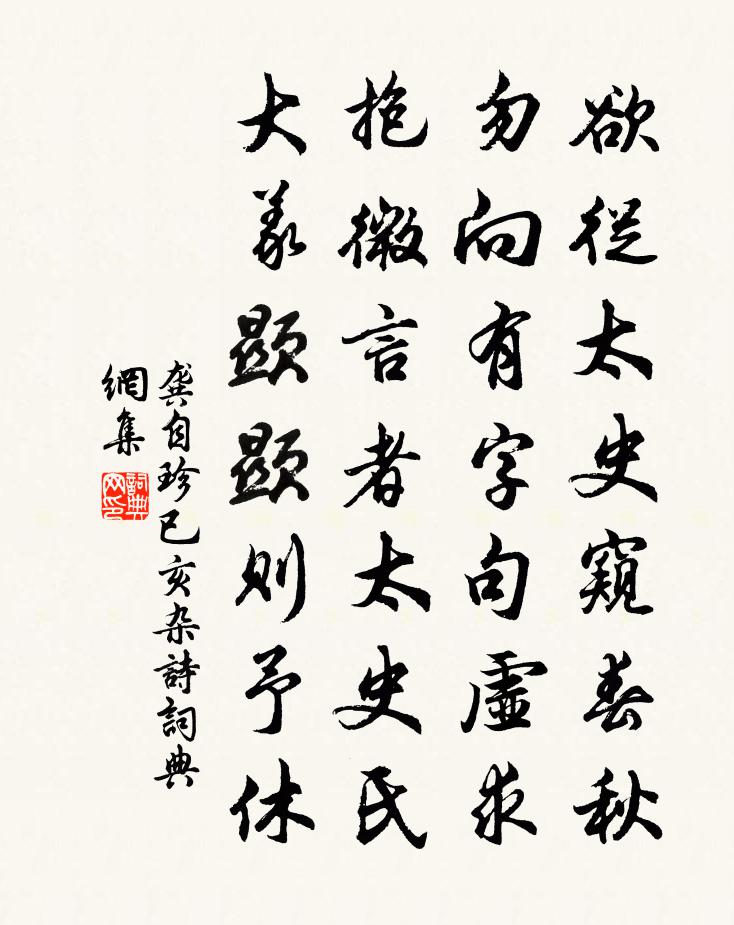 欲從太史窺春秋
勿向有字句虛求
抱微言者太史氏
大義顯顯則予休
龔自珍己亥杂詩詞典
網集
詞典
网印